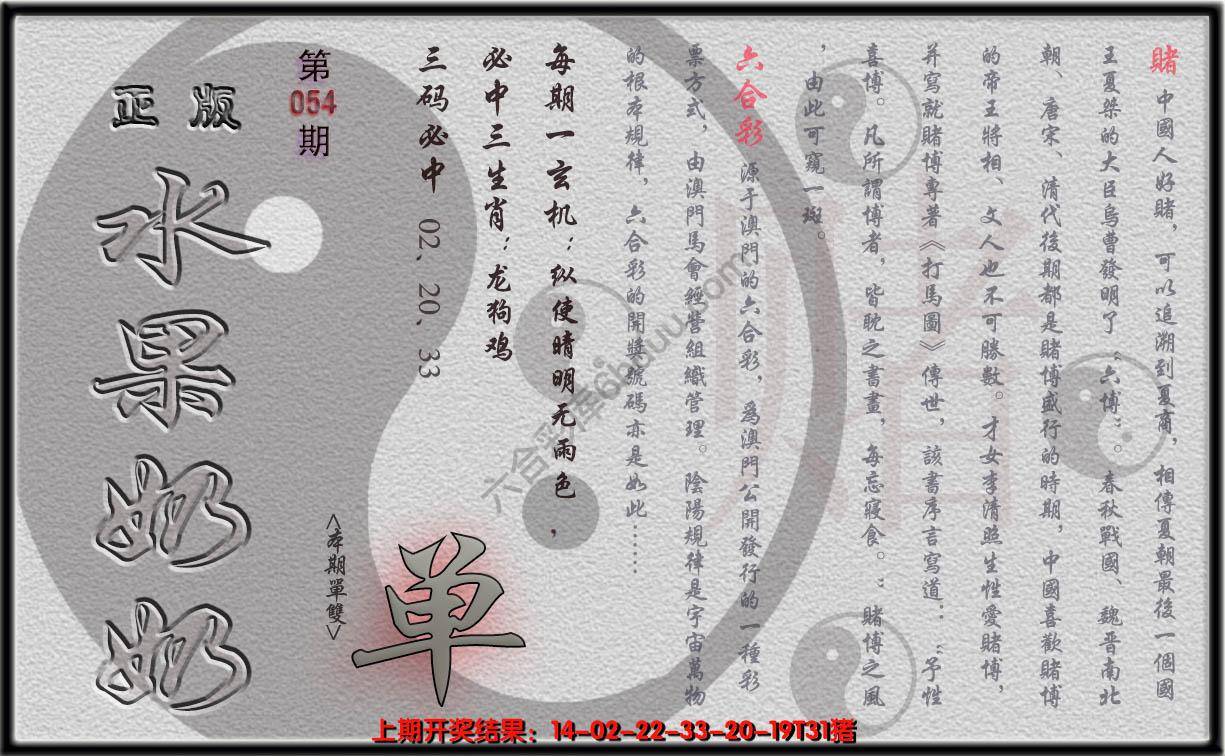 賭 中國人好賭，可以追溯到夏商，相傳夏朝最後一個國
王夏桀的大臣烏曹發明了“六博”。春秋戰國、魏晋南北
朝、唐宋、清代後期都是賭博盛行的時期，中國喜歡賭博
的帝王將相、文人也不可勝數。才女李清照生性愛賭博，
并寫就賭博專著《打馬圖》傳世，該書序言寫道：“予性
喜博。凡所謂博者，皆耽之書晝，每忘寢食。”賭博之風
，由此可窺一斑。
六合彩 源于澳門的六合彩，爲澳門公開發行的一種彩
票方式，由澳門馬會經營組織管理。陰陽規律是宇宙萬物
的根本規律，六合彩的開獎號碼亦是如此……
每期一玄机：纵使晴明无雨色，
必中三生肖：龙狗鸡
三码必中 02、20、33
第
054
期
正版
水果奶奶
<本期單雙>
单
上期开奖结果：14-02-22-33-20-19T31猪